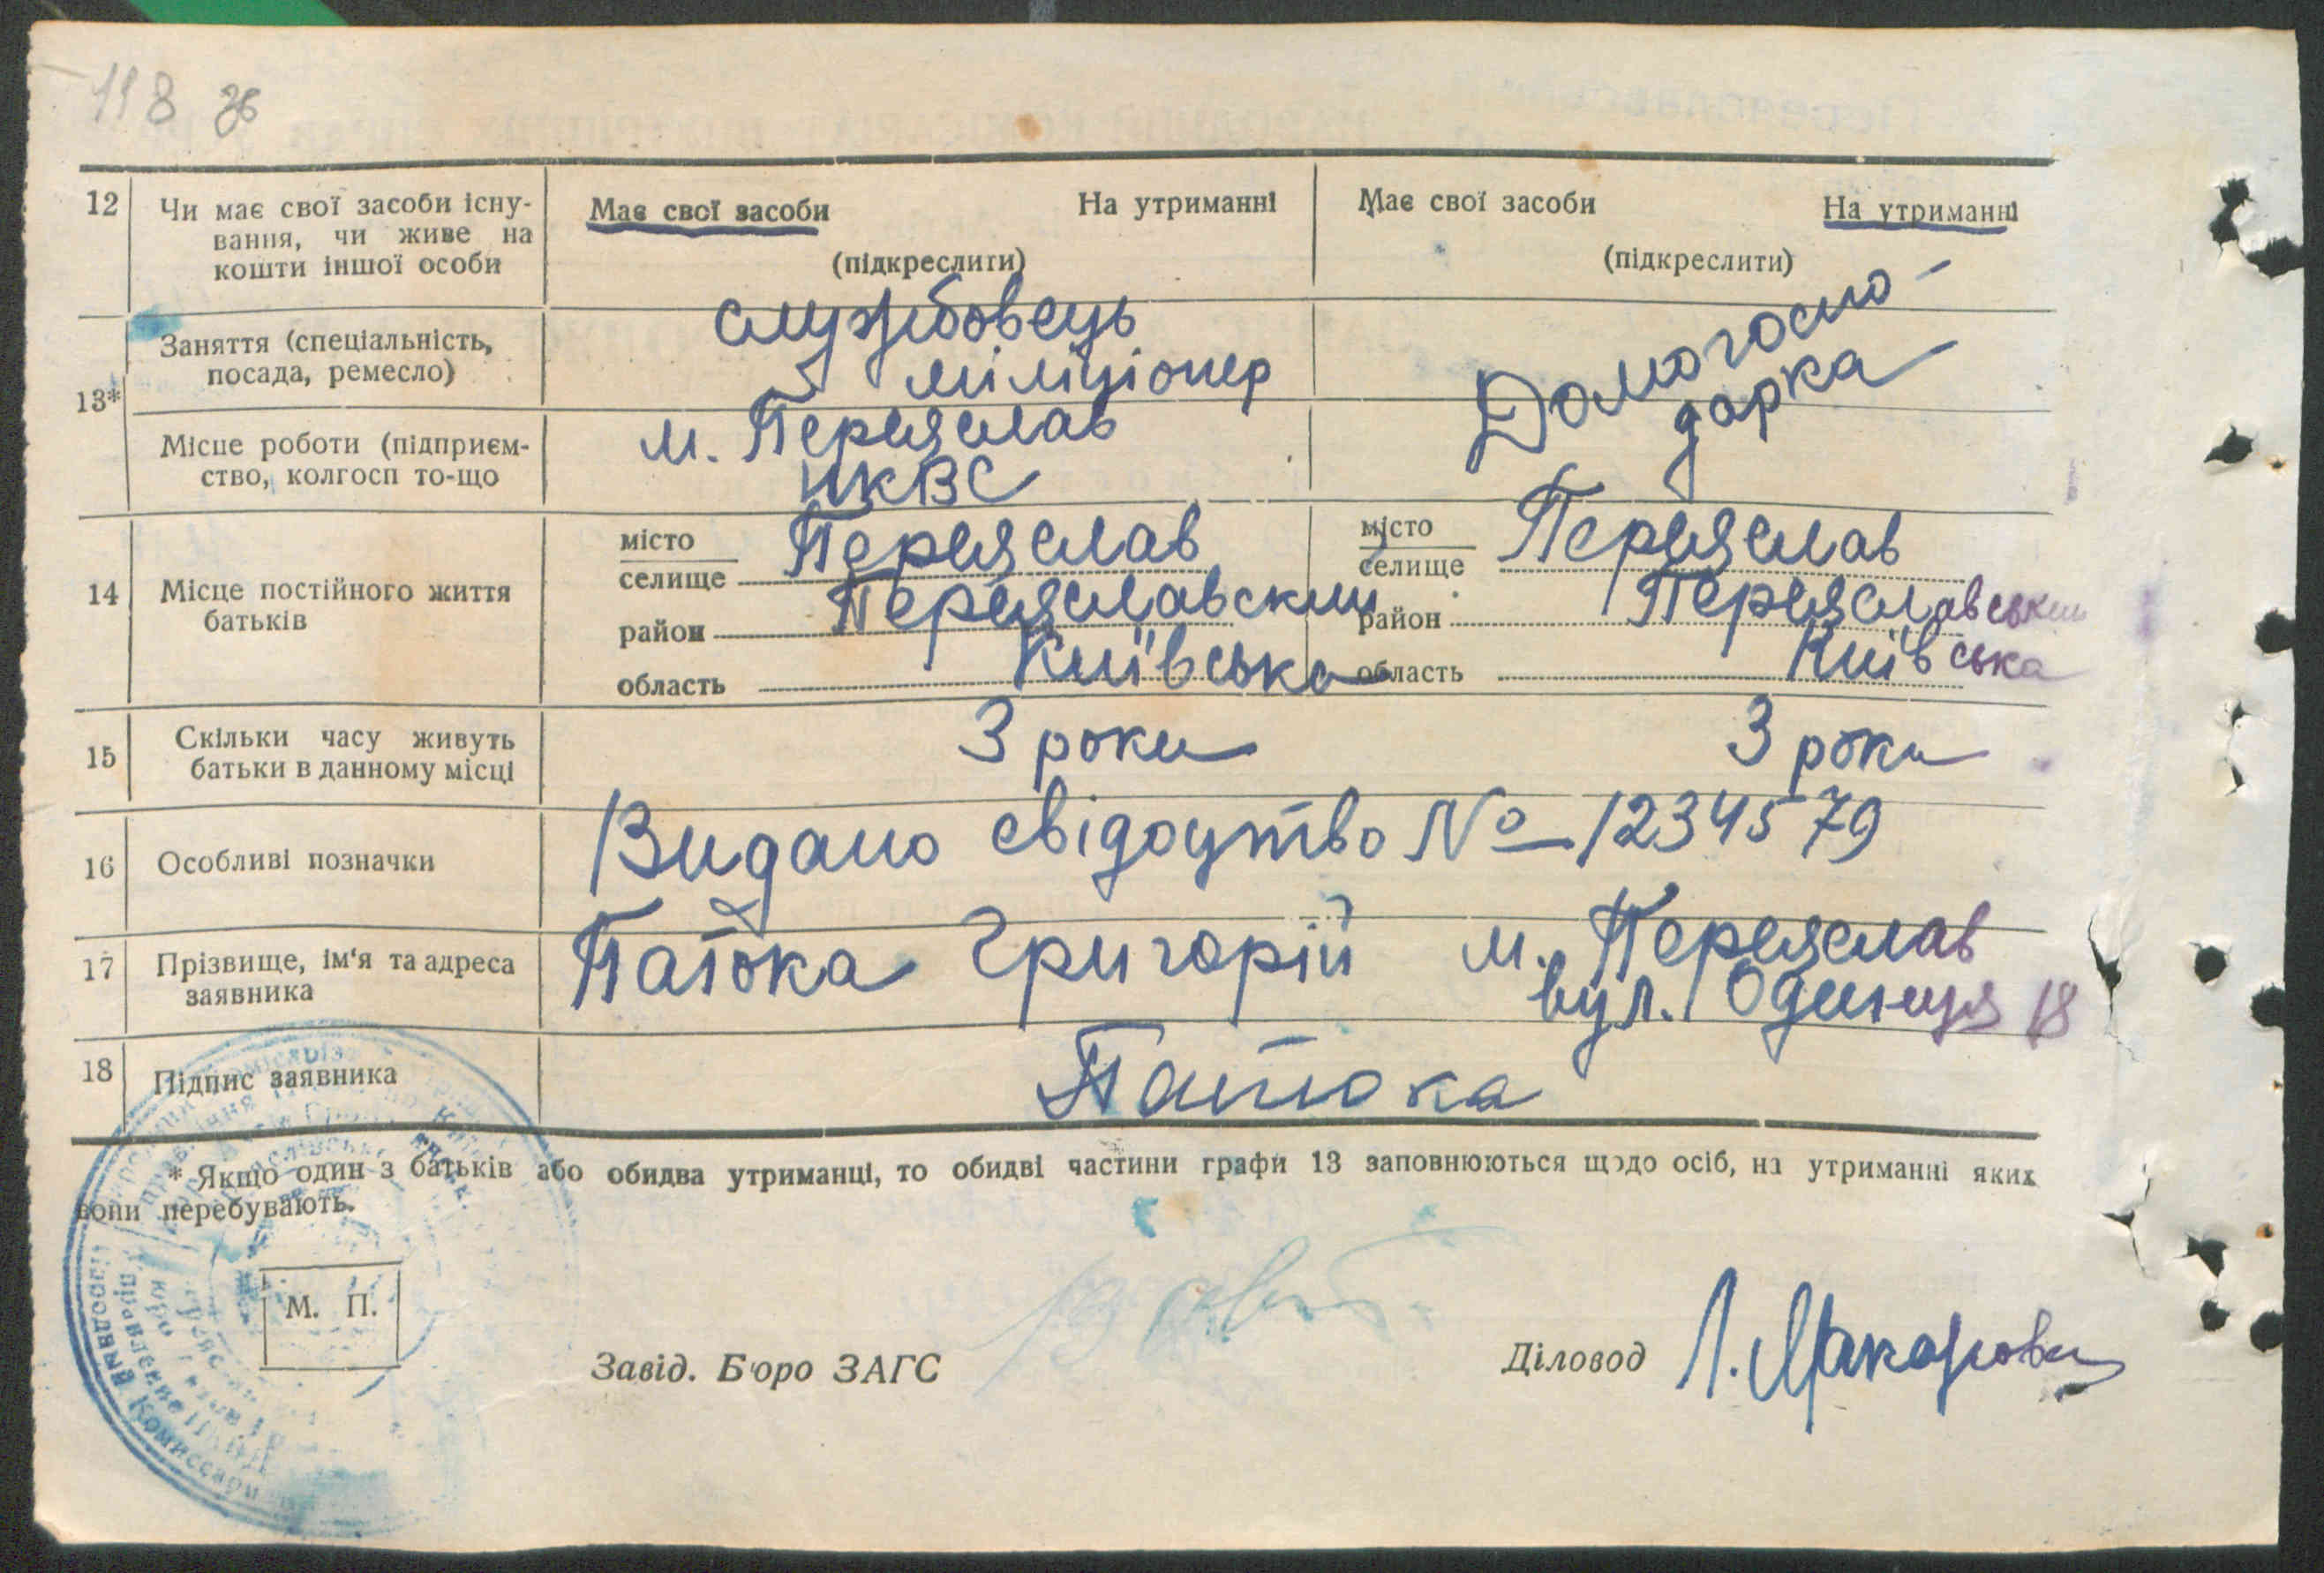 118 зв
12 Чи має свої засоби існу- Має свої засоби На утриманні Має свої засоби На утриманні
вання, чи живе на
кошти іншої особи (підкреслити) (підкреслити)
13* Заняття (спеціальність, службовець Домогоспо-
посада, ремесло) міліціонер дарка
Місце роботи (підприєм- м. Переяслав
ство, колгосп то-що НКВС
14 Місце постійного життя місто Переяслав місто Переяслав
батьків селище селище
район Переяславский район Переяславський
область Київська область Київська
15 Скільки часу живуть 3 роки 3 роки
батьки в данному місці
16 Особливі позначки Видано свідоцтво № 1234579
17 Прізвище, ім'я та адреса Патока Григорій м. Переяслав
заявника вул. Одинця 18
18 Підпис заявника Патока
* Якщо один з батьків або обидва утриманці, то обидві частини графи 13 заповнюються щодо осіб, на утриманні яких
вони перебувають.
М. П.
Завід. Бюро ЗАГС Діловод Л. Макарова